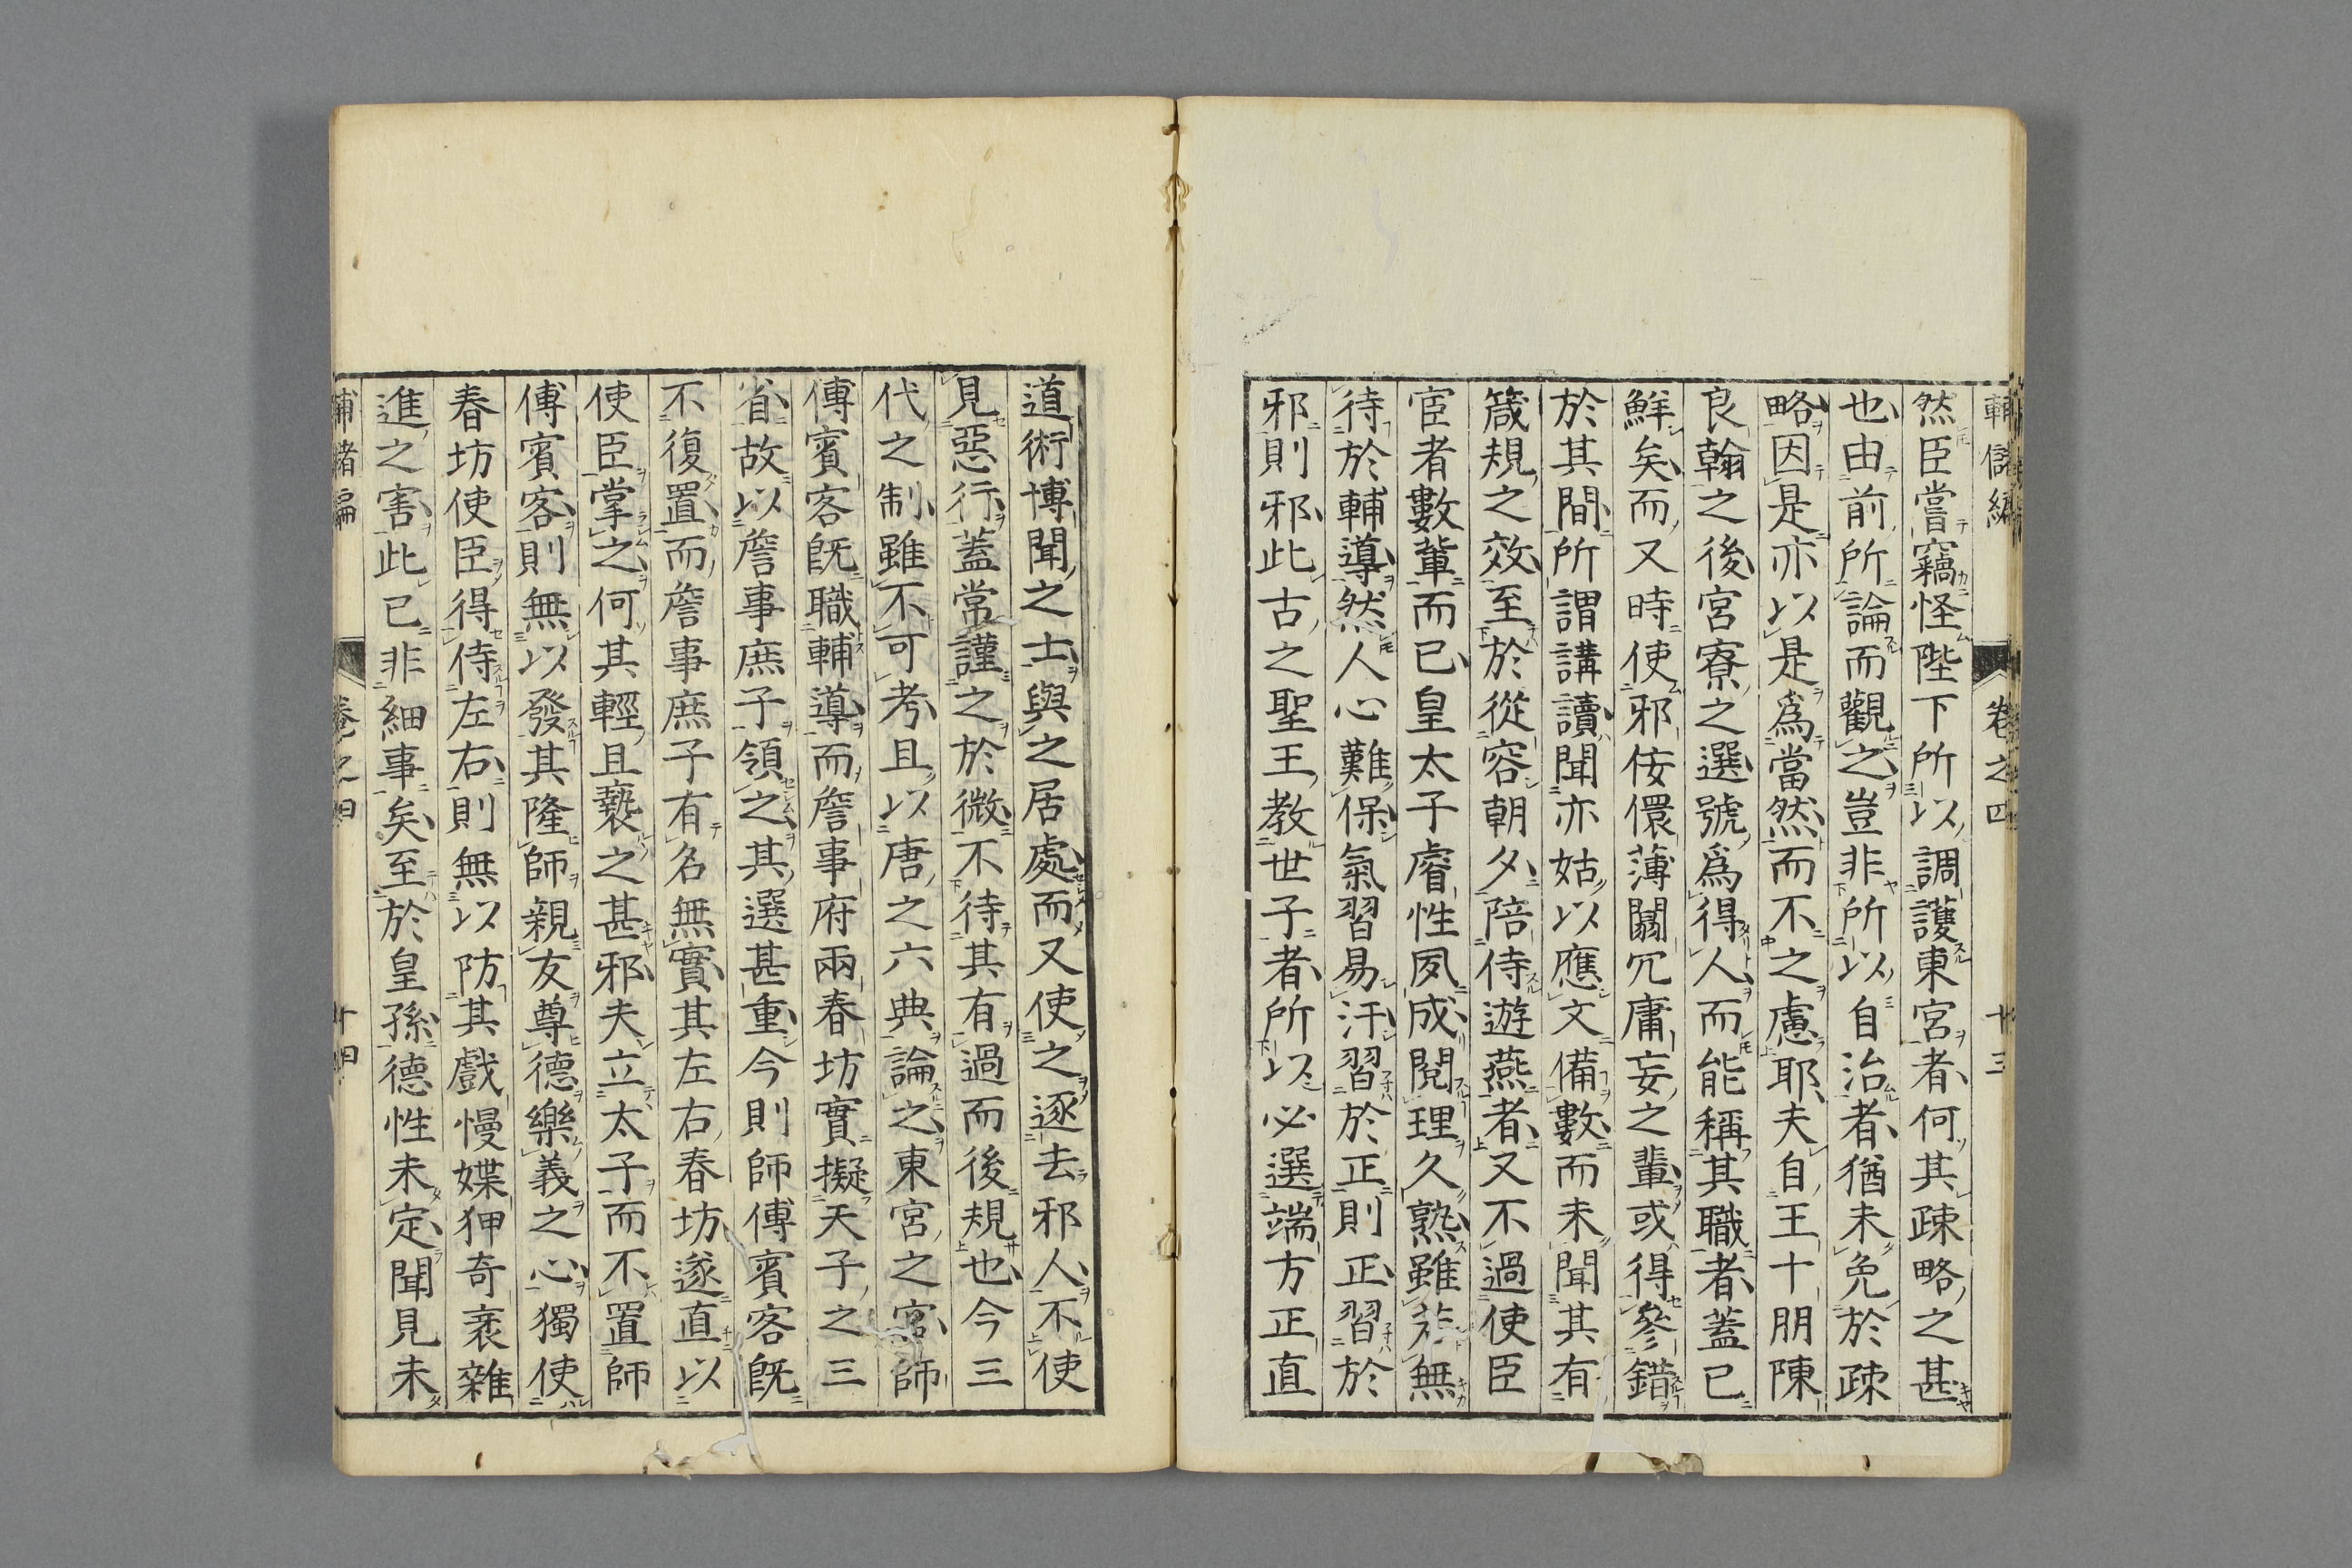 輔儲編 卷之四 十三
然臣嘗竊怪陛下所以調護東宮者何其疎略之甚
也由前所論而觀之豈非所以自治者猶未免於疎
略因是亦以是爲當然而不之慮耶夫自王十朋陳
良翰之後宮寮之選號爲得人而能稱其職者蓋已
鮮矣而又時使邪佞儇薄闒冗庸妄之輩或得參錯
於其間所謂講讀聞亦姑以應文備數而未聞其有
箴規之效至於從容朝夕陪侍遊燕者又不過使臣
宦者數輩而已皇太子睿性夙成閱理久熟雖若無
待於輔導然人心難保氣習易汙習於正則正習於
邪則邪此古之聖王教世子者所以必選端方正直
道術博聞之士與之居處而又使之逐去邪人不使
見惡行蓋常謹之於微不待其有過而後規也今三
代之制雖不可考且以唐之六典論之東宮之官師
傅賓客旣職輔導而詹事府兩春坊實擬天子之三
省故以詹事庶子領之其選甚重今則師傅賓客旣
不復置而詹事庶子有名無實其左右春坊遂直以
使臣掌之何其輕且褻之甚邪夫立太子而不置師
傅賓客則無以發其隆師親友尊德樂義之心獨使
春坊使臣得侍左右則無以防其戲慢媟狎奇衺雜
進之害此已非細事矣至於皇孫德性未定聞見未
輔儲編 卷之四 十四